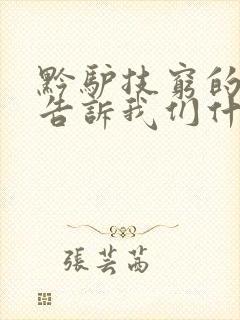 黔驴技窮的
告訴我们什
張芸茜